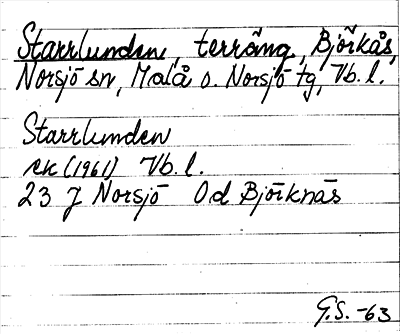 Starrlunden, terräng, Björkås,
Norsjö sn, Malå o. Norsjö tg, Vb. l.
Starrlunden
ek (1961) Vb. l.
23 J Norsjö Od Björknäs
G.S. -63